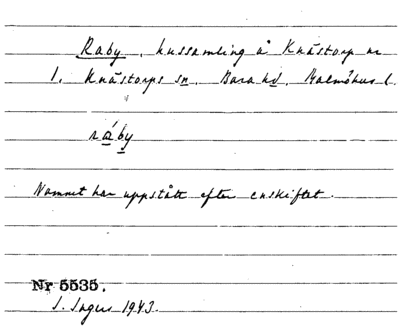 Raby, hussamling å Knästorp nr
1. Knästorps sn. Bara hd. Malmöhus l.
ráby
Namnet har uppstått efter enskiftet.
Nr 5535.
I. Ingers 1943.